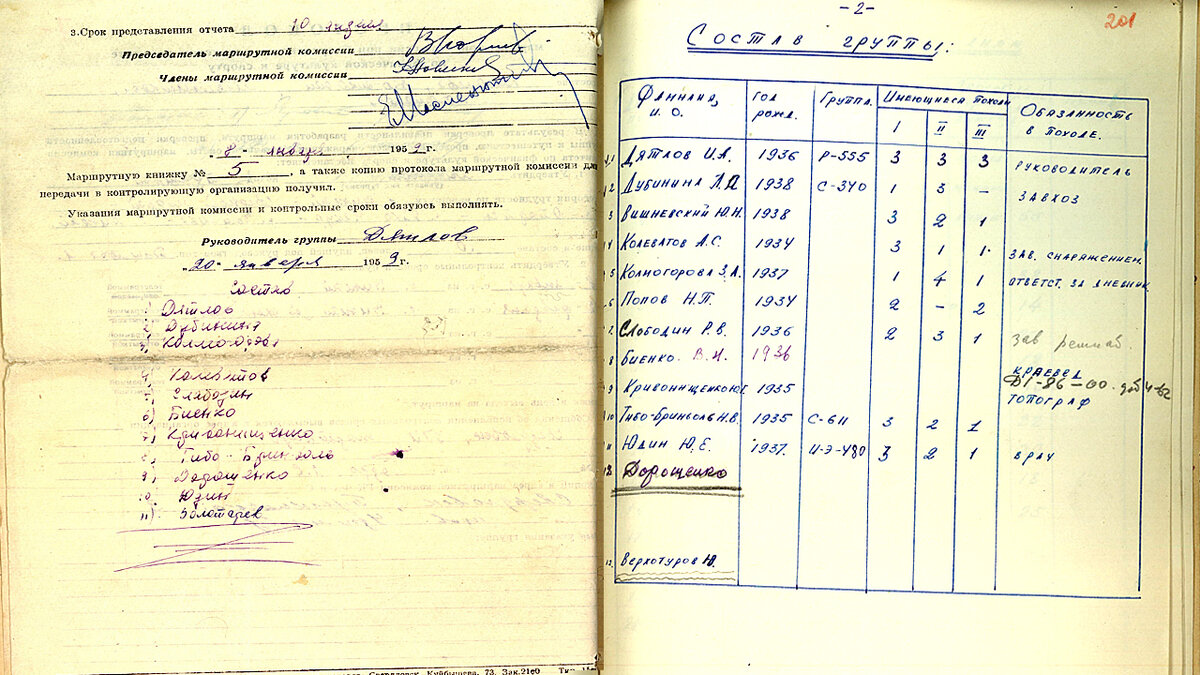 3.Срок представления отчета 10
Председатель маршрутной комиссии
Члены маршрутной комиссии
"8" января 1959 г.
Маршрутную книжку № 5, а также копию протокола маршрутной комиссии для
передачи в контролирующую организацию получил.
Указания маршрутной комиссии и контрольные сроки обязуюсь выполнять.
Руководитель группы Дятлов
"20" января 1959 г.
Состав
1) Дятлов
2) Дубинина
3)
4) Колеватов
5) Слободин
6) Биенко
7) Кривонищенко
8) Тибо-Бриньоль
9) Дорошенко
10. Юдин
11) Золотарев
Свердловск, Куйбышева, 73. Зак.
-2-
201
Состав группы:
Фамилия, И. О. Год рожд. Группа. Имеющиеся походы I II III Обязанность в походе.
1 Дятлов И.А. 1936 Р-555 3 3 3 руководитель
2 Дубинина Л.А 1938 С-340 1 3 – завхоз
3 Вишневский Ю.Н. 1938 3 2 1
4 Колеватов А.С. 1934 3 1 1 зав. снаряжением.
5 Колмогорова З.А. 1937 1 4 1 ответст. за дневник
6 Попов Н.П. 1934 2 – 2
7 Слободин Р.В. 1936 2 3 1 зав
8 Биенко В.И. 1936 краевед
Д1-86-00. доб 4-62
9 Кривонищенко Ю.Г. 1935 топограф
10 Тибо-Бриньоль Н.В. 1935 С-611 3 2 1
11 Юдин Ю.Е. 1937. И-Э-480 3 2 1 врач
12 Дорошенко
Верхотуров Ю.